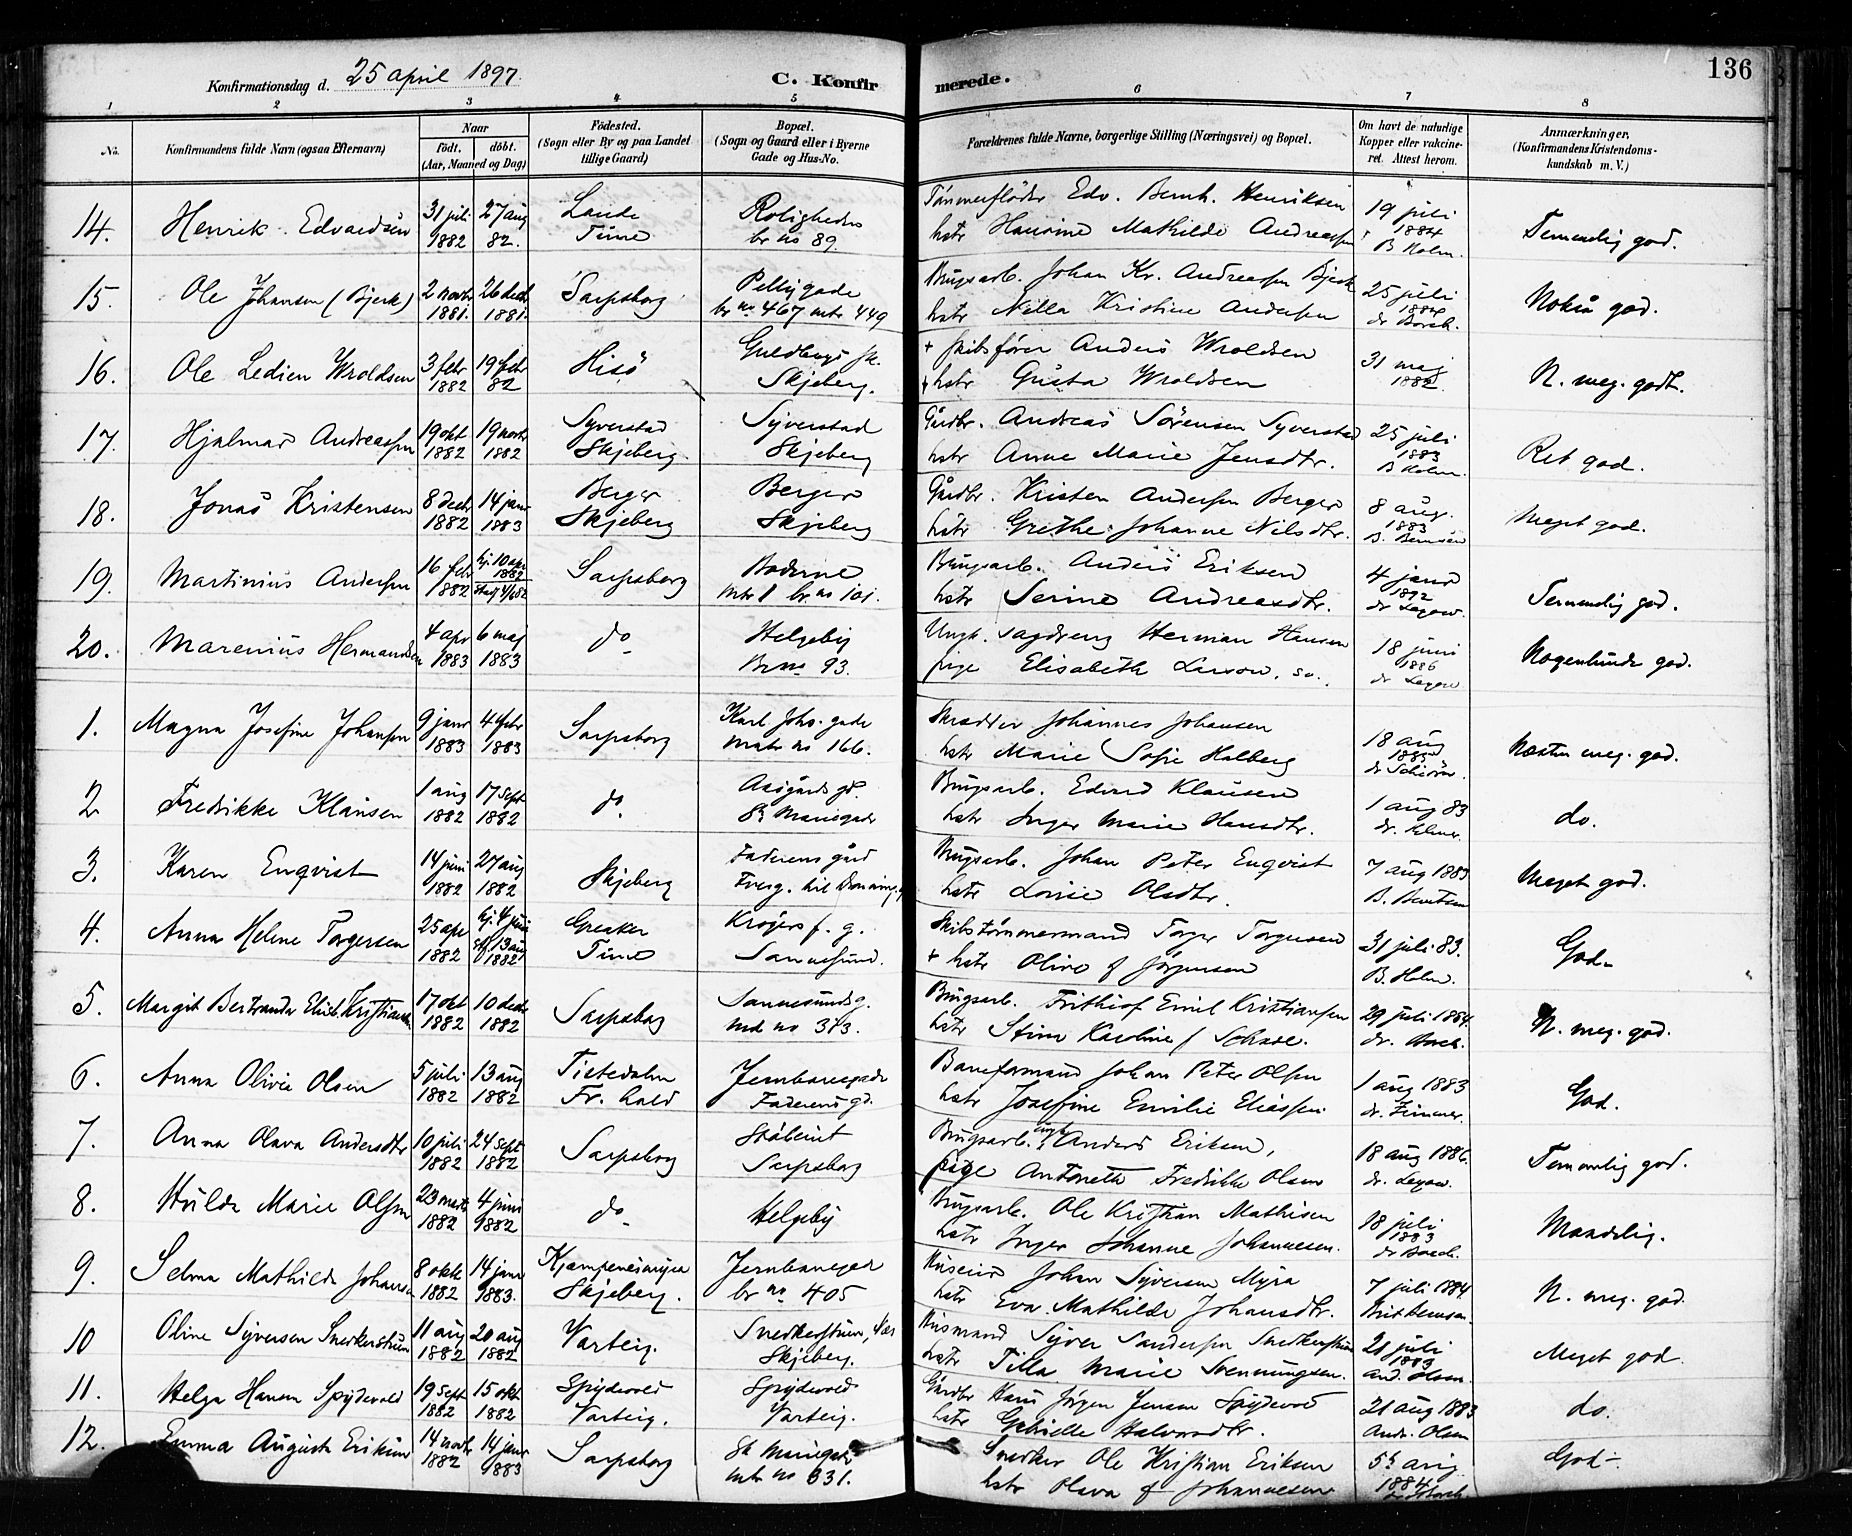 Konfirmationsdag d. 25 april 1897.
C. Konfir
merede.
136
1 2 3 4 5 6 7 8
No.
Konfirmandens fulde Navn (ogsaa Efternavn)
Naar
Födt. döbt.
(Aar, Maaned og Dag)
Födested.
(Sogn eller By og paa Landet
tillige Gaard)
Bopæl.
(Sogn og Gaard eller i Byerne
Gade og Hus-No.
Forældrenes fulde Navne, borgerlige Stilling (Næringsvei) og Bopæl.
Om havt de naturlige
Kopper eller vakcine-
ret. Attest herom.
Anmærkninger,
(Konfirmandens Kristendoms-
kundskab m. V.)
14. Henrik Edvardsen 31 juli 1882 27 aug 82. Lande Tune Roligheden br no 89 Tömmerflöder Edv. Bernh. Henriksen hstr Mathilde Andreassen 19 juli 1884 B Holm. Temmelig god.
15. Ole Johansen (Bjerk) 2 novbr. 1881. 26 decbr. 1881 Sarpsborg Pellygade br no 467 mtr 449 Brugsarb. Johan Kr. Andreassen Bjerk hstr Nilla Kristine Andersen 25 juli 1884 dr Borch. Nokså god.
16. Ole Ledien Wroldsen 3 febr 1882 19 febr 82 Hisö Skjeberg. + skibsförer Anders Wroldsen + hstr Gusta Wroldsen 31 maj 1882. N. meg. godt.
17. Hjalmar Andreassen 19 okt 1882 19 novbr 1882 Syverstad Skjeberg. Syverstad Skjeberg Gårdbr. Andreas Sörensen Syverstad hstr Anne Marie Jensdtr. 25 juli 1883 B Holm. Ret god.
18. Jonas Kristensen 8 decbr 1882 14 janr 1883 Berger Skjeberg Berger Skjeberg Gårdbr. Kristen Andersen Berger hstr Grethe Johanne Nilsdtr. 8 aug. 1883 Meget god.
19. Martinius Andersen 16 febr 1882 hj. 10 apr 1882 Sarpsborg Boderne mtr 1 br. no 101. Brugsarb. Anders Eriksen hstr Serine Andreasdtr. 4 janr 1892 Temmelig god.
20. Marenius Hermansen 4 apr 1883 6 maj 1883 do Helgeby Br no 93. Ungk. sagdreng Herman Hansen pige Elisabeth Larson, sv. 18 juni 1886 Nogenlunde god.
1. Magna Josefine Johansen 9 janr 1883 4 febr 1883 Sarpsborg Karl Johs. gade matr no 166. Skrædder Johannes Johansen hstr Marie Sofie Halberg 18 aug Næsten meg. god.
2 Fredrikke Klausen 1 aug 1882 17 sept 1882 do. St Mariegade Brugsarb. Edvard Klausen hstr Inger Marie Hansdtr. 1 aug 83 do.
3. Karen Enqvist 14 juni 1882 27 aug 1882 Skjeberg Faderens gård Brugsarb. Johan Peter Enqvist hstr Lovise Olsdtr. 7 aug 1883 B. Berntsen Meget god.
4. Anna Helene Torgersen 25 apr 1882 hj. 4 juni 13 aug 1882 Greaker Tune Sannesund. Skibstömmermand Torger Torgersen + hstr Olive f Jörgensen 31 juli 83. B. Holm. God.
5. Margit Bertrande Elisb. Kristiansen 17 okt 1882 10 decbr 1882 Sarpsborg Sannesundsg. md no 373. Brugsarb. Frithiof Emil Kristiansen hstr Stine Karoline f Schade. 29 juli 1884. dr. Borch. N. meg. god.
6. Anna Olivie Olsen 5 juli 1882 13 aug 1882 Tistedalen Fr. hald Jernbanegade Faderens gd. Baneformand Johan Peter Olsen hstr Josefine Emilie Eliassen. 1 aug 1883 God.
7. Anna Olava Andersdtr 10 juli 1882 24 sept 1882 Sarpsborg Sarpsborg Brugsarb. ungk. Anders Eriksen, pige Antonette Fredrikke Olsen 18 aug 1886. Temmelig god.
8. Hulda Marie Olsen 23 marts 1882 4 juni 1882 do Helgeby Brugsarb. Ole Kristian Mathisen hstr Inger Johanne Johannesen. 18 juli 1883 dr Borch. Maadelig.
9. Selma Mathilde Johansen 8 okt 1882 14 janr 1883. Skjeberg. Jernbanegade br no 405 Johan Syversen Myra hstr Eva Mathilde Johansdtr. 7 juli 1884 N. meg. god.
10 Oline Syversen Snekkerstuen 11 aug 1882 20 aug 1882 Varteig. Snekkerstuen, Skjeberg. Husmand Syver Sandersen Snekkerstuen hstr Tilla Marie Svenningsen. 21 juli 1883 And. Olsen. Meget god.
11. Helga Hansen Spydevold 19 sept 1882 15 okt 1882 Spydevold Varteig. Spydevold Varteig. Gårdbr Hans Jörgen Jensen Spydevold hstr Gabrielle Halvorsdtr. 21 aug 1883 Andr. Olsen do.
12. Emma Augusta Eriksen 14 novbr 1882 14 janr 1883 Sarpsborg St Mariegade mtr no 331. Snedker Ole Kristian Eriksen hstr Olava f Johannesen 5 aug 1884 God.